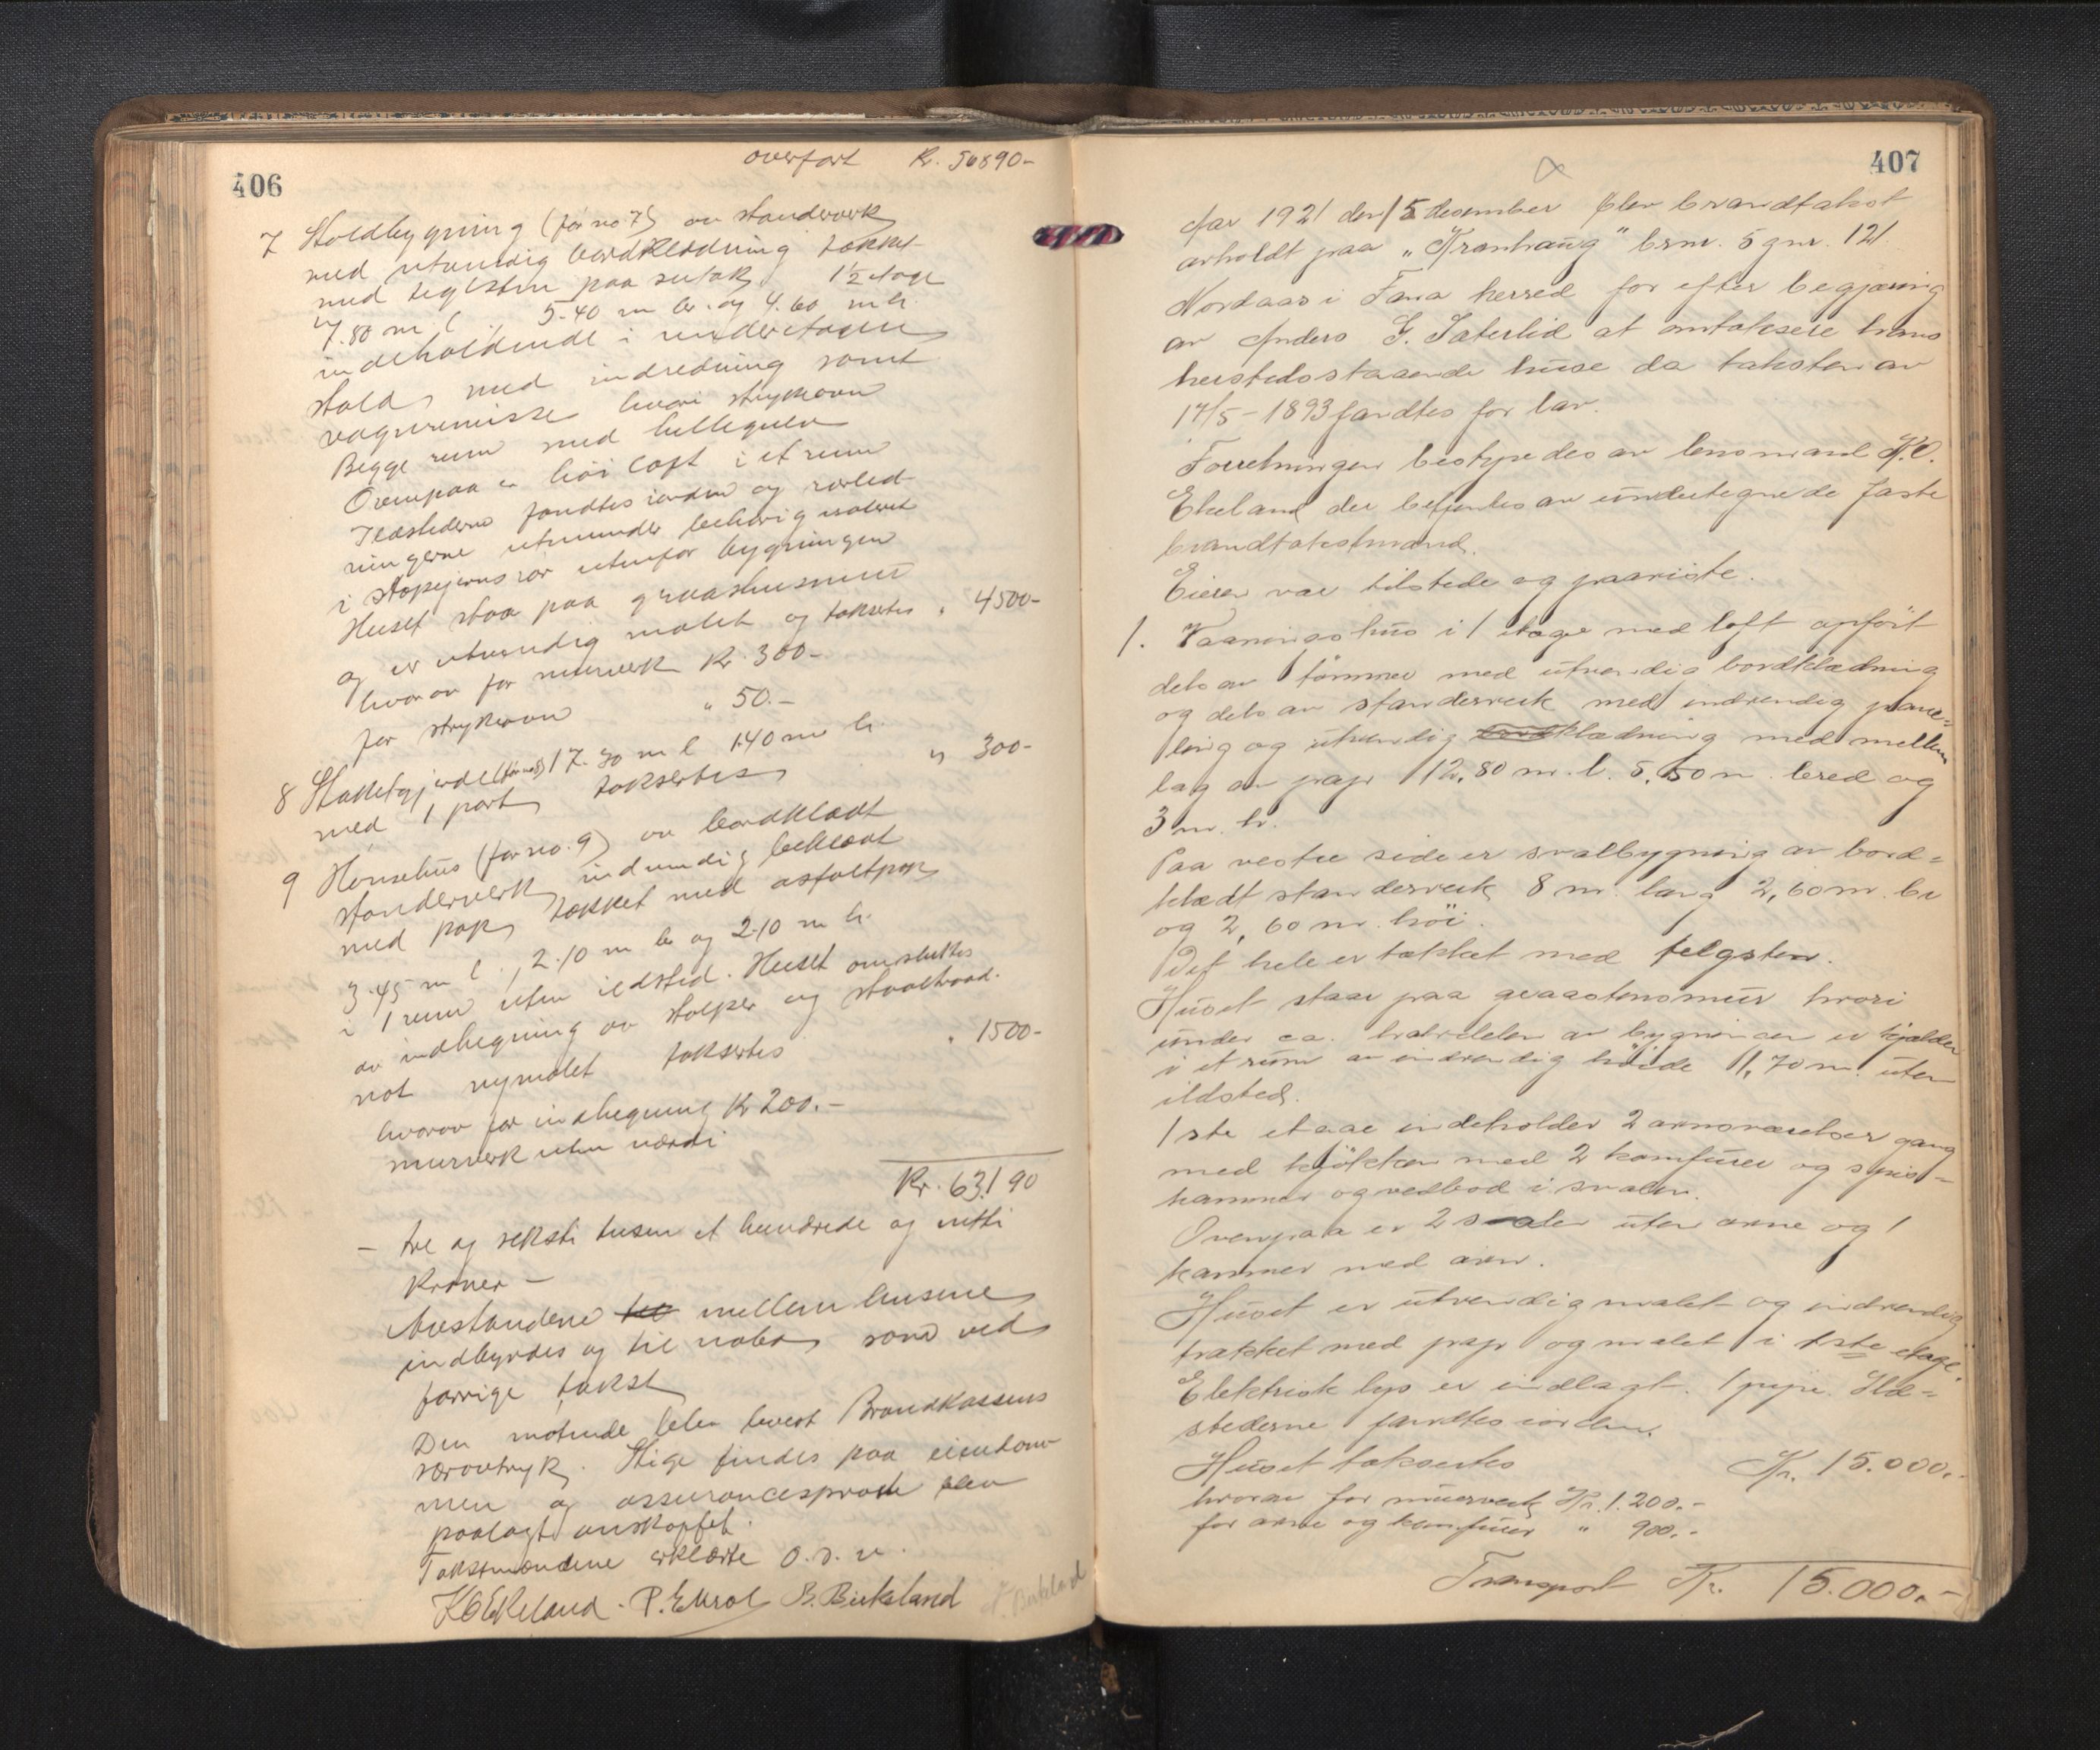 406
overført Kr. 56890-
7 Staldbygning (før no 7) av standverk
med utvendig bordklædning tækket
med teglsten paa sutak 1½ etage
7.80 m l 5.40 m br. og 4.60 m h.
indeholdende i underetagen
stald med indredning samt
vognremisse hvori strykeovn
Begge rum med hellegulv
Ovenpaa er höi loft i et rum
Ildstederne fandtes iorden og rørled-
ningerne utmunder behörig isoleret
i støpejernsrør utenfor bygningen
Huset staar paa graastensmur
og er utvendig malet og taksertes " 4500-
hvorav for murverk Kr. 300-
for strykeovn " 50.-
8 Stakitgjerde (før no 8) 17.30 m l 1.40 m h
med 1 port taksertes " 300-
9 Hönsehus (før no. 9) av bordklædt
standerverk indvendig beklædt
med pap tækket med asfaltpap
3.45 m l., 2.10 m b og 2.10 m h.
i 1 rum uten ildsted. Huset omsluttes
av indhegning av stolper og staaltraad-
not nymalet taksertes " 1500-
hvorav for indhegning Kr 200.-
murverk uten værdi
Kr. 63190
- tre og seksti tusen et hundrede og nitti
Kroner -
Avstandene til mellem husene
indbyrdes og til nabo som ved
forrige takst
Den møtende blev levert Brandkassens
særavtryk. Stige findes paa eiendom-
men og assuranceprøite blev
paalagt anskaffet.
Takstmændene erklærte o.s.v.
K O Ekeland. P. Ekrol B. Birkeland
Birkeland
407
Aar 1921 den 15 desember blev brandtakst
avholdt paa "Kronhaug" brnr. 5 gnr. 121
Nordaas i Fana herred for efter begjæring
av Anders G. Sæterlid at omtaksere hans
hersteds staaende huse da taksten av
17/5 - 1893 fandtes for lav.
Forretningen bestyredes av lensmand K.O.
Ekeland der betjentes av undertegnede faste
brandtakstmænd.
Eieren var tilstede og paaviste.
1. Vaaningshus i 1 etage med loft opfört
dels av tömmer med utvendig bordklædning
og dels av standerverk med indvendig pane-
ling og utvendig bordklædning med mellem
lag av pap 12,80 m. l. 5,50 m. bred og
3 m. h.
Paa vestre side er svalbygning av bord-
klædt standerverk 8 m. lang 2,60 m. br
og 2,60 m. höi.
Det hele er tækket med telgsten.
Huset staar paa graastensmur hvori
under ca. halvdelen av bygningen er kjælder
i et rum av indvendig höide 1,70 m. uten
ildsted.
1ste etage indeholder 2 ovnsværelser gang
med kjökken med 2 komfurer og spis-
kammer og vedbod i svalen.
Ovenpaa er 2 saler uten ovne og 1
kammer med ovn.
Huset er utvendig malet og indvendig
trækket med pap og malet i 1ste etage.
Elektrisk lys er indlagt. 1 pipe. Ild-
stederne fandtes iorden.
Huset taksertes Kr. 15.000.-
hvorav for murverk Kr. 1.200.-
for ovne og komfurer " 900.-
Transport Kr. 15.000.-